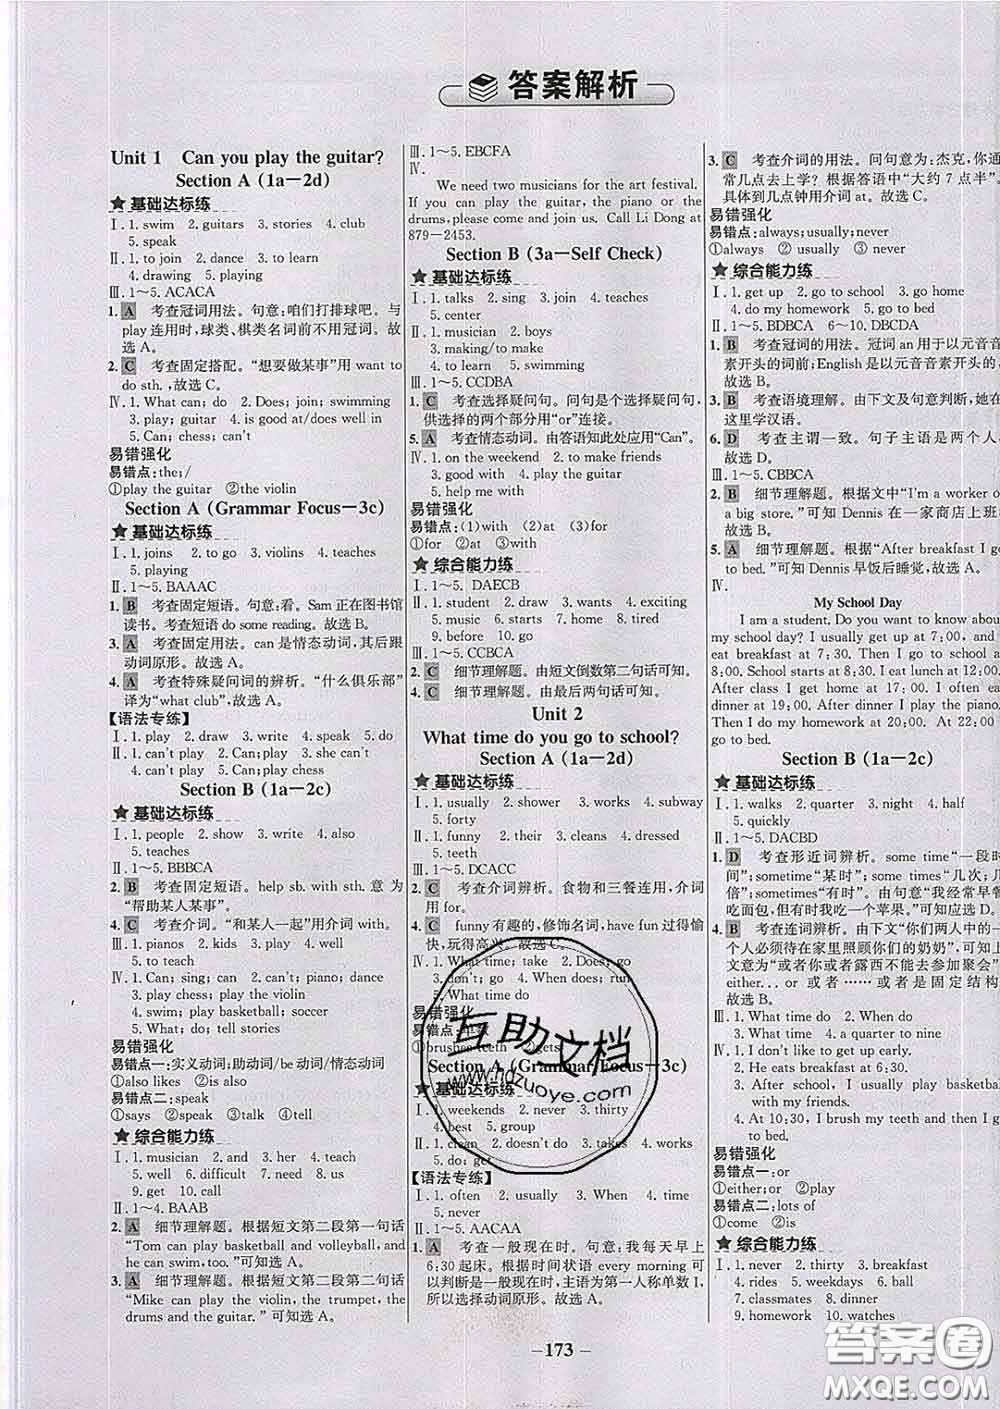 答案解析
Unit 1 Can you play the guitar?
Section A (1a—2d)
★基础达标练
Ⅰ. 1. swim 2. guitars 3. stories 4. club
5. speak
Ⅱ. 1. to join 2. dance 3. to learn
4. drawing 5. playing
Ⅲ. 1～5. ACACA
1. A 考查冠词用法。句意：咱们打排球吧。与
play 连用时，球类、棋类名词前不用冠词。故
选 A。
2. C 考查固定搭配。“想要做某事”用 want to
do sth. ,故选 C。
Ⅳ. 1. What can; do 2. Does; join; swimming
3. play; guitar 4. is good at/does well in
5. Can; chess; can't
易错强化
易错点: the;/
①play the guitar ②the violin
Section A (Grammar Focus—3c)
★基础达标练
Ⅰ. 1. joins 2. to go 3. violins 4. teaches
5. playing
Ⅱ. 1～5. BAAAC
1. B 考查固定短语。句意：看。Sam 正在图书馆
读书。考查短语 do some reading。故选 B。
3. A 考查固定用法。can 是情态动词，其后跟
动词原形。故选 A。
4. A 考查特殊疑问词的辨析。“什么俱乐部”
译为“what club”，故选 A。
【语法专练】
Ⅰ. 1. play 2. draw 3. write 4. speak 5. do
Ⅱ. 1. can't play 2. Can; play 3. she can't
4. can't draw 5. Can; play chess
Section B (1a—2c)
★基础达标练
Ⅰ. 1. people 2. show 3. write 4. also
5. teaches
Ⅱ. 1～5. BBBCA
2. B 考查固定短语。help sb. with sth. 意为
“帮助某人某事”。
4. C 考查介词。“和某人一起”用介词 with。
Ⅲ. 1. pianos 2. kids 3. play 4. well
5. to teach
Ⅳ. 1. Can; sing; can 2. can't; piano; dance
3. play chess; play the violin
4. swim; play basketball; soccer
5. What; do; tell stories
易错强化
易错点一: 实义动词;助动词/be动词/情态动词
①also likes ②is also
易错点二: speak
①says ②speak ③talk ④telling
★综合能力练
Ⅰ. 1. musician 2. and 3. her 4. teach
5. well 6. difficult 7. need 8. us
9. get 10. call
Ⅱ. 1～4. BAAB
2. A 细节理解题。根据短文第二段第一句话
“Tom can play basketball and volleyball, and
he can swim, too. ”可知选 A。
3. A 细节理解题。根据短文第二段第二句话
“Mike can play the violin, the trumpet, the
drums and the guitar. ”可知选 A。
Ⅲ. 1～5. EBCFA
Ⅳ.
We need two musicians for the art festival.
If you can play the guitar, the piano or the
drums, please come and join us. Call Li Dong at
879—2453.
Section B (3a—Self Check)
★基础达标练
Ⅰ. 1. talks 2. sing 3. join 4. teaches
5. center
Ⅱ. 1. musician 2. boys
3. making/to make
4. to learn 5. swimming
Ⅲ. 1～5. CCDBA
1. C 考查选择疑问句。问句是个选择疑问句，
供选择的两个部分用“or”连接。
5. A 考查情态动词。由答语知此处应用“Can”。
Ⅳ. 1. on the weekend 2. to make friends
3. good with 4. play the guitar
5. help me with
易错强化
易错点: (1)with (2)at (3)for
①for ②at ③with
★综合能力练
Ⅰ. 1～5. DAECB
Ⅱ. 1. student 2. draw 3. wants 4. exciting
5. music 6. starts 7. home 8. tired
9. before 10. go
Ⅲ. 1～5. CCBCA
2. C 细节理解题。由短文倒数第二句话可知。
4. C 细节理解题。由最后两句话可知。
Unit 2
What time do you go to school?
Section A (1a—2d)
★基础达标练
Ⅰ. 1. usually 2. shower 3. works 4. subway
5. forty
Ⅱ. 1. funny 2. their 3. cleans 4. dressed
5. teeth
Ⅲ. 1～5. DCACC
2. C 考查介词辨析。食物和三餐连用，介词
用 for。
4. C funny 有趣的，修饰名词，have fun 过得愉
快，玩得高兴。故选 C。
Ⅳ. 1. What time; take 2. Does; go
3. don't; go 4. When does; run
5. What time do
易错强化
易错点: 单数
①brushes teeth ②gets
Section A (Grammar Focus—3c)
★基础达标练
Ⅰ. 1. weekends 2. never 3. thirty
4. best 5. group
Ⅱ. 1. clean 2. doesn't do 3. takes 4. works
5. do; get
【语法专练】
Ⅰ. 1. often 2. usually 3. When 4. time
5. never
Ⅱ. 1～5. AACAA
1. A 考查一般现在时。句意：我每天早上
6:30 起床。根据时间状语 every morning 可
以判断是一般现在时，主语为第一人称单数 I，
所以选择动词原形。故选 A。
3. C 考查介词的用法。问句意为：杰克，你通
常几点去上学？根据答语中“大约 7 点半”，
具体到几点钟用介词 at。故选 C。
易错强化
易错点: always; usually; never
①always ②usually ③never
★综合能力练
Ⅰ. 1. get up 2. go to school 3. go home
4. do my homework 5. go to bed
Ⅱ. 1～5. BDBCA 6～10. DBCDA
1. B 考查冠词的用法。冠词 an 用于以元音音
素开头的词前；English 是以元音音素开头的，
故选 B。
3. B 考查语境理解。由下文及句意判断，她在
这里学汉语。
6. D 考查主谓一致。句子主语是两个人
故选 D。
Ⅲ. 1～5. CBBCA
2. B 细节理解题。根据文中“I'm a worker o
a big store. ”可知 Dennis 在一家商店上班
故选 B。
5. A 细节理解题。根据“After breakfast I g
to bed. ”可知 Dennis 早饭后睡觉，故选 A。
Ⅳ.
My School Day
I am a student. Do you want to know abou
my school day? I usually get up at 7:00, and
eat breakfast at 7:30. Then I go to school a
8:00. School starts at 8:30. I eat lunch at 12:00.
After class I get home at 17:00. I often ea
dinner at 19:00. After dinner I play the piano.
Then I do my homework at 20:00. At 22:00
go to bed.
Section B (1a—2c)
★基础达标练
Ⅰ. 1. walks 2. quarter 3. night 4. half
5. quickly
Ⅱ. 1～5. DACBD
1. D 考查形近词辨析。some time“一段时
间”；sometime“某时”；some times“几次；几
倍”；sometimes“有时”。由句意“我经常早餐
吃面包，但有时我也吃一个苹果。”可知应选 D。
4. B 考查连词辨析。由下文“你们两人中的一
个人必须待在家里照顾你们的奶奶”，可知上
文意为“或者你或者露西不能去参加聚会”
either... or 或者……或者是固定结构
故选 B。
Ⅲ. 1. What time do 2. When do
3. What time 4. a quarter to nine
Ⅳ. 1. I don't like to get up early.
2. He eats breakfast at 7:00.
3. After school, I usually play basketba
with my friends.
4. At 10:30, I brush my teeth and then I g
to bed.
易错强化
易错点一: or
①either; or ②play
易错点二: lots of
①come ②is
★综合能力练
Ⅰ. 1. never 2. thirty 3. breakfast
4. rides 5. weekdays 6. ball
7. classmates 8. dinner
9. homework 10. watches
—173—
互助文档
www.hdzuoye.com
答案圈
MXQE.COM